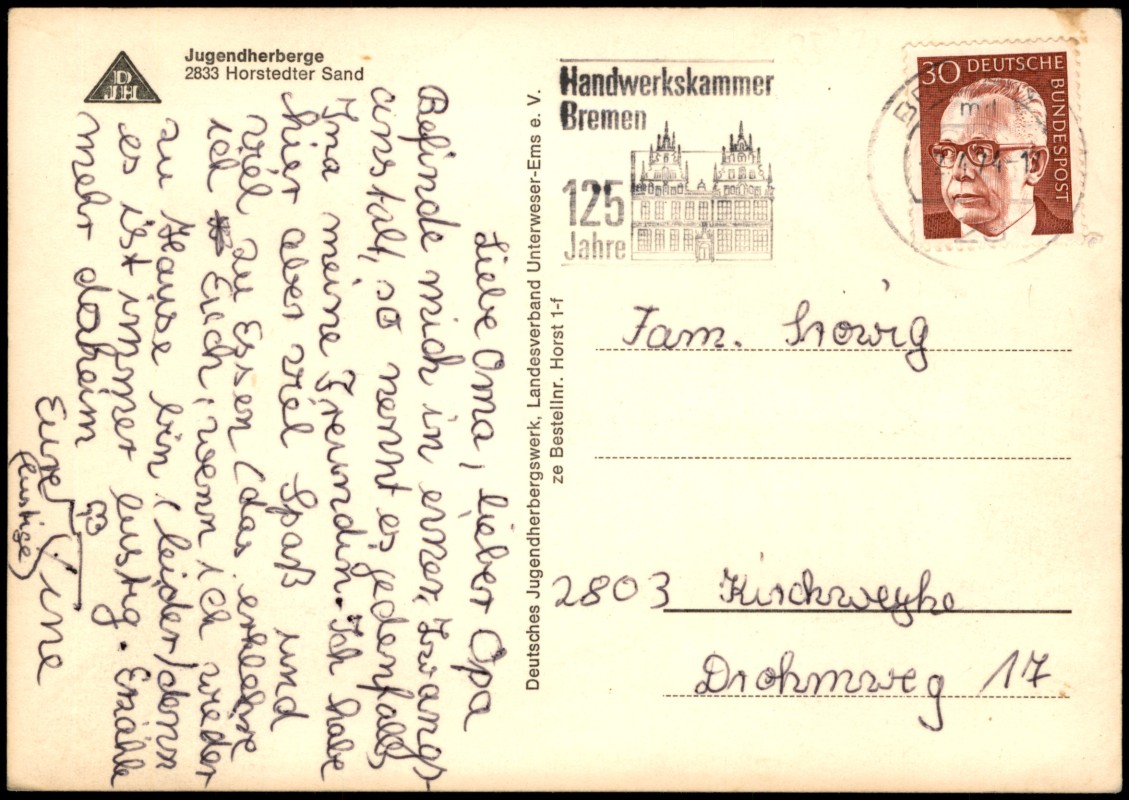 Jugendherberge
2833 Horstedter Sand
DJH
Liebe Oma, lieber Opa
Befinde mich in einer Zwangs-
anstalt, so nennt es jedenfalls
Ina meine Freundin. Ich habe
hier aber viel Spaß und
viel zu Essen (das erkläre
ich Euch, wenn ich wieder
zu Hause bin (leider) denn
es ist immer lustig. Erzähle
mehr daheim
Eure
(lustige)
Tine
Deutsches Jugendherbergswerk, Landesverband Unterweser-Ems e. V.
ze Bestellnr. Horst 1-f
Handwerkskammer
Bremen
125
Jahre
30 DEUTSCHE
BUNDESPOST
Fam.
2803 Kirchweyhe
Drohmweg 17